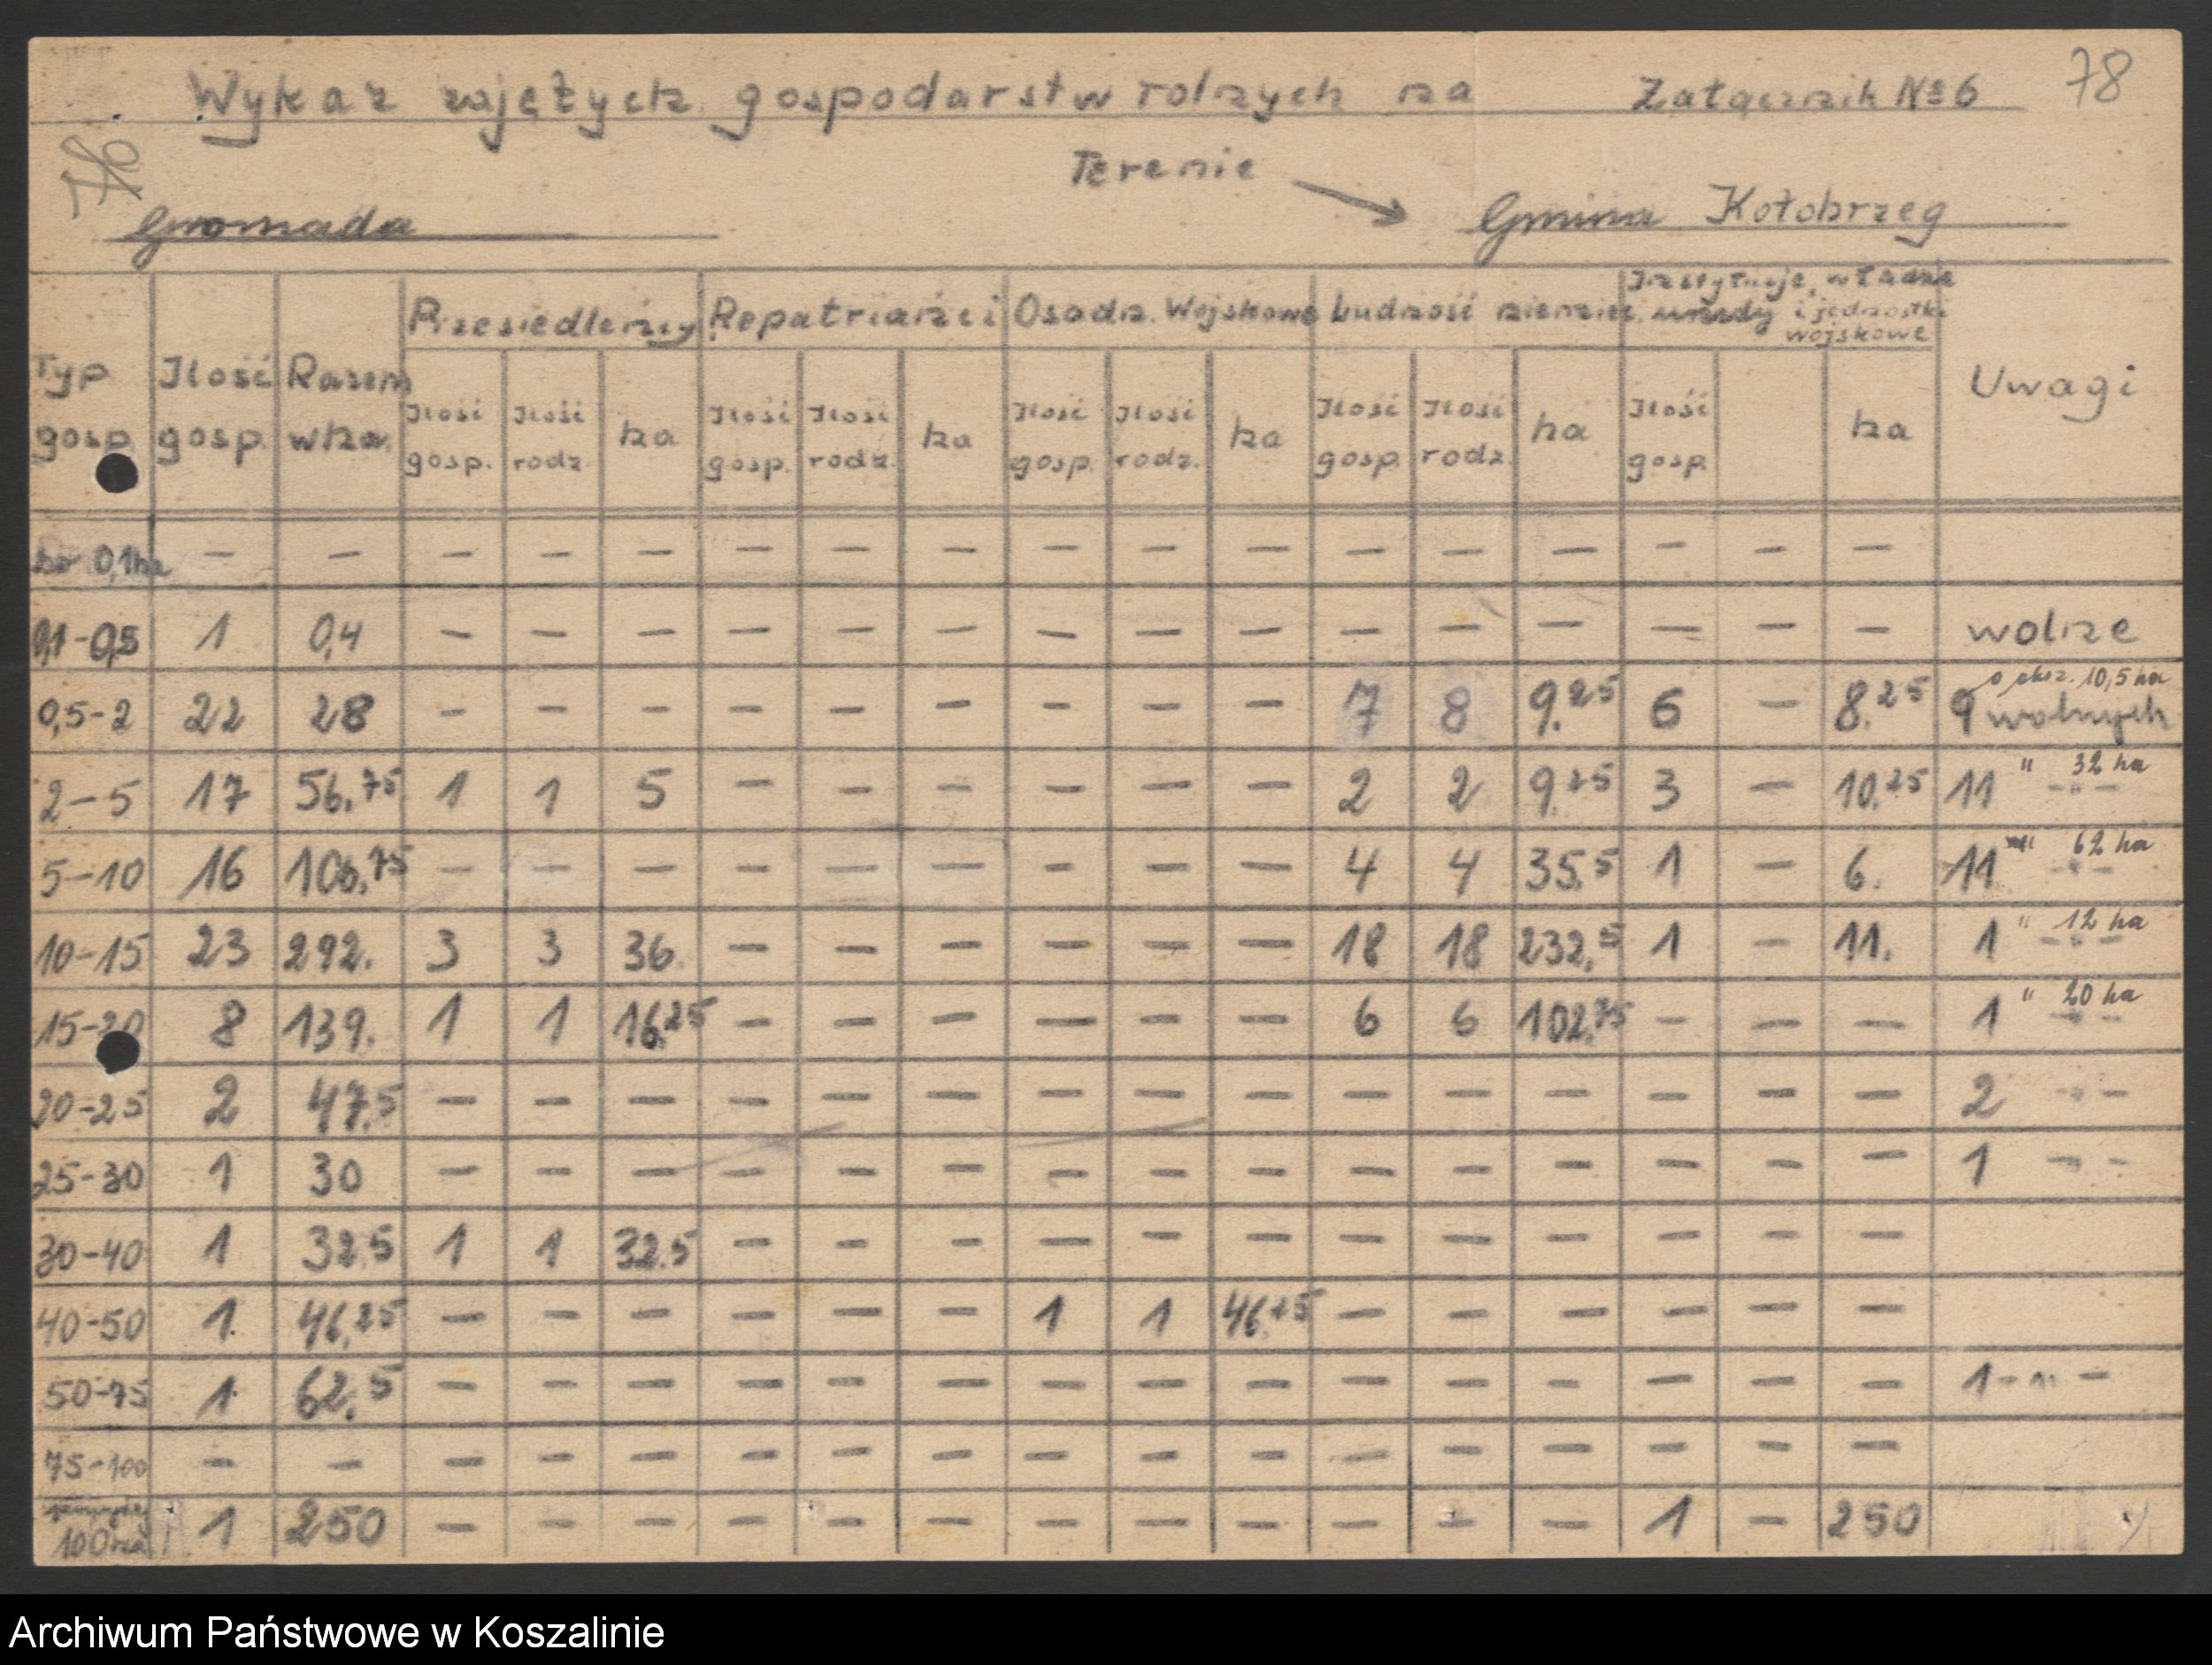 Wykaz zajętych gospodarstw rolnych na Załącznik № 6 78
Terenie
76
Gromada Gmina Kołobrzeg
Typ gosp. Ilość gosp. Razem w ha. Przesiedleńcy Repatriańci Osadn. Wojskowe Ludność niemiec. Instytucje, władze urzędy i jednostki wojskowe Uwagi
Ilość gosp. Ilość rodz. ha Ilość gosp. Ilość rodz. ha Ilość gosp. Ilość rodz. ha Ilość gosp. Ilość rodz. ha Ilość gosp. ha
do 0,1 ha — — — — — — — — — — — — — — — — —
0,1-0,5 1 0,4 — — — — — — — — — — — — — — — wolne
0,5-2 22 28 — — — — — — — — — 7 8 9.25 6 — 8.25 9 wolnych o obsz. 10,5 ha
2-5 17 56.75 1 1 5 — — — — — — 2 2 9.25 3 — 10.25 11 " 32 ha -"-
5-10 16 106.75 — — — — — — — — — 4 4 35.5 1 — 6. 11 " 62 ha -"-
10-15 23 292. 3 3 36. — — — — — — 18 18 232.5 1 — 11. 1 " 12 ha -"-
15-20 8 139. 1 1 16.25 — — — — — — 6 6 102.75 — — — 1 " 20 ha -"-
20-25 2 47.5 — — — — — — — — — — — — — — — 2 -"-
25-30 1 30 — — — — — — — — — — — — — — — 1 -"-
30-40 1 32.5 1 1 32.5 — — — — — — — — — — — —
40-50 1. 46.25 — — — — — — 1 1 46.25 — — — — — —
50-75 1. 62.5 — — — — — — — — — — — — — — — 1 -"-
75-100 — — — — — — — — — — — — — — — — —
100 ha 1 250 — — — — — — — — — — — — 1 — 250
Archiwum Państwowe w Koszalinie